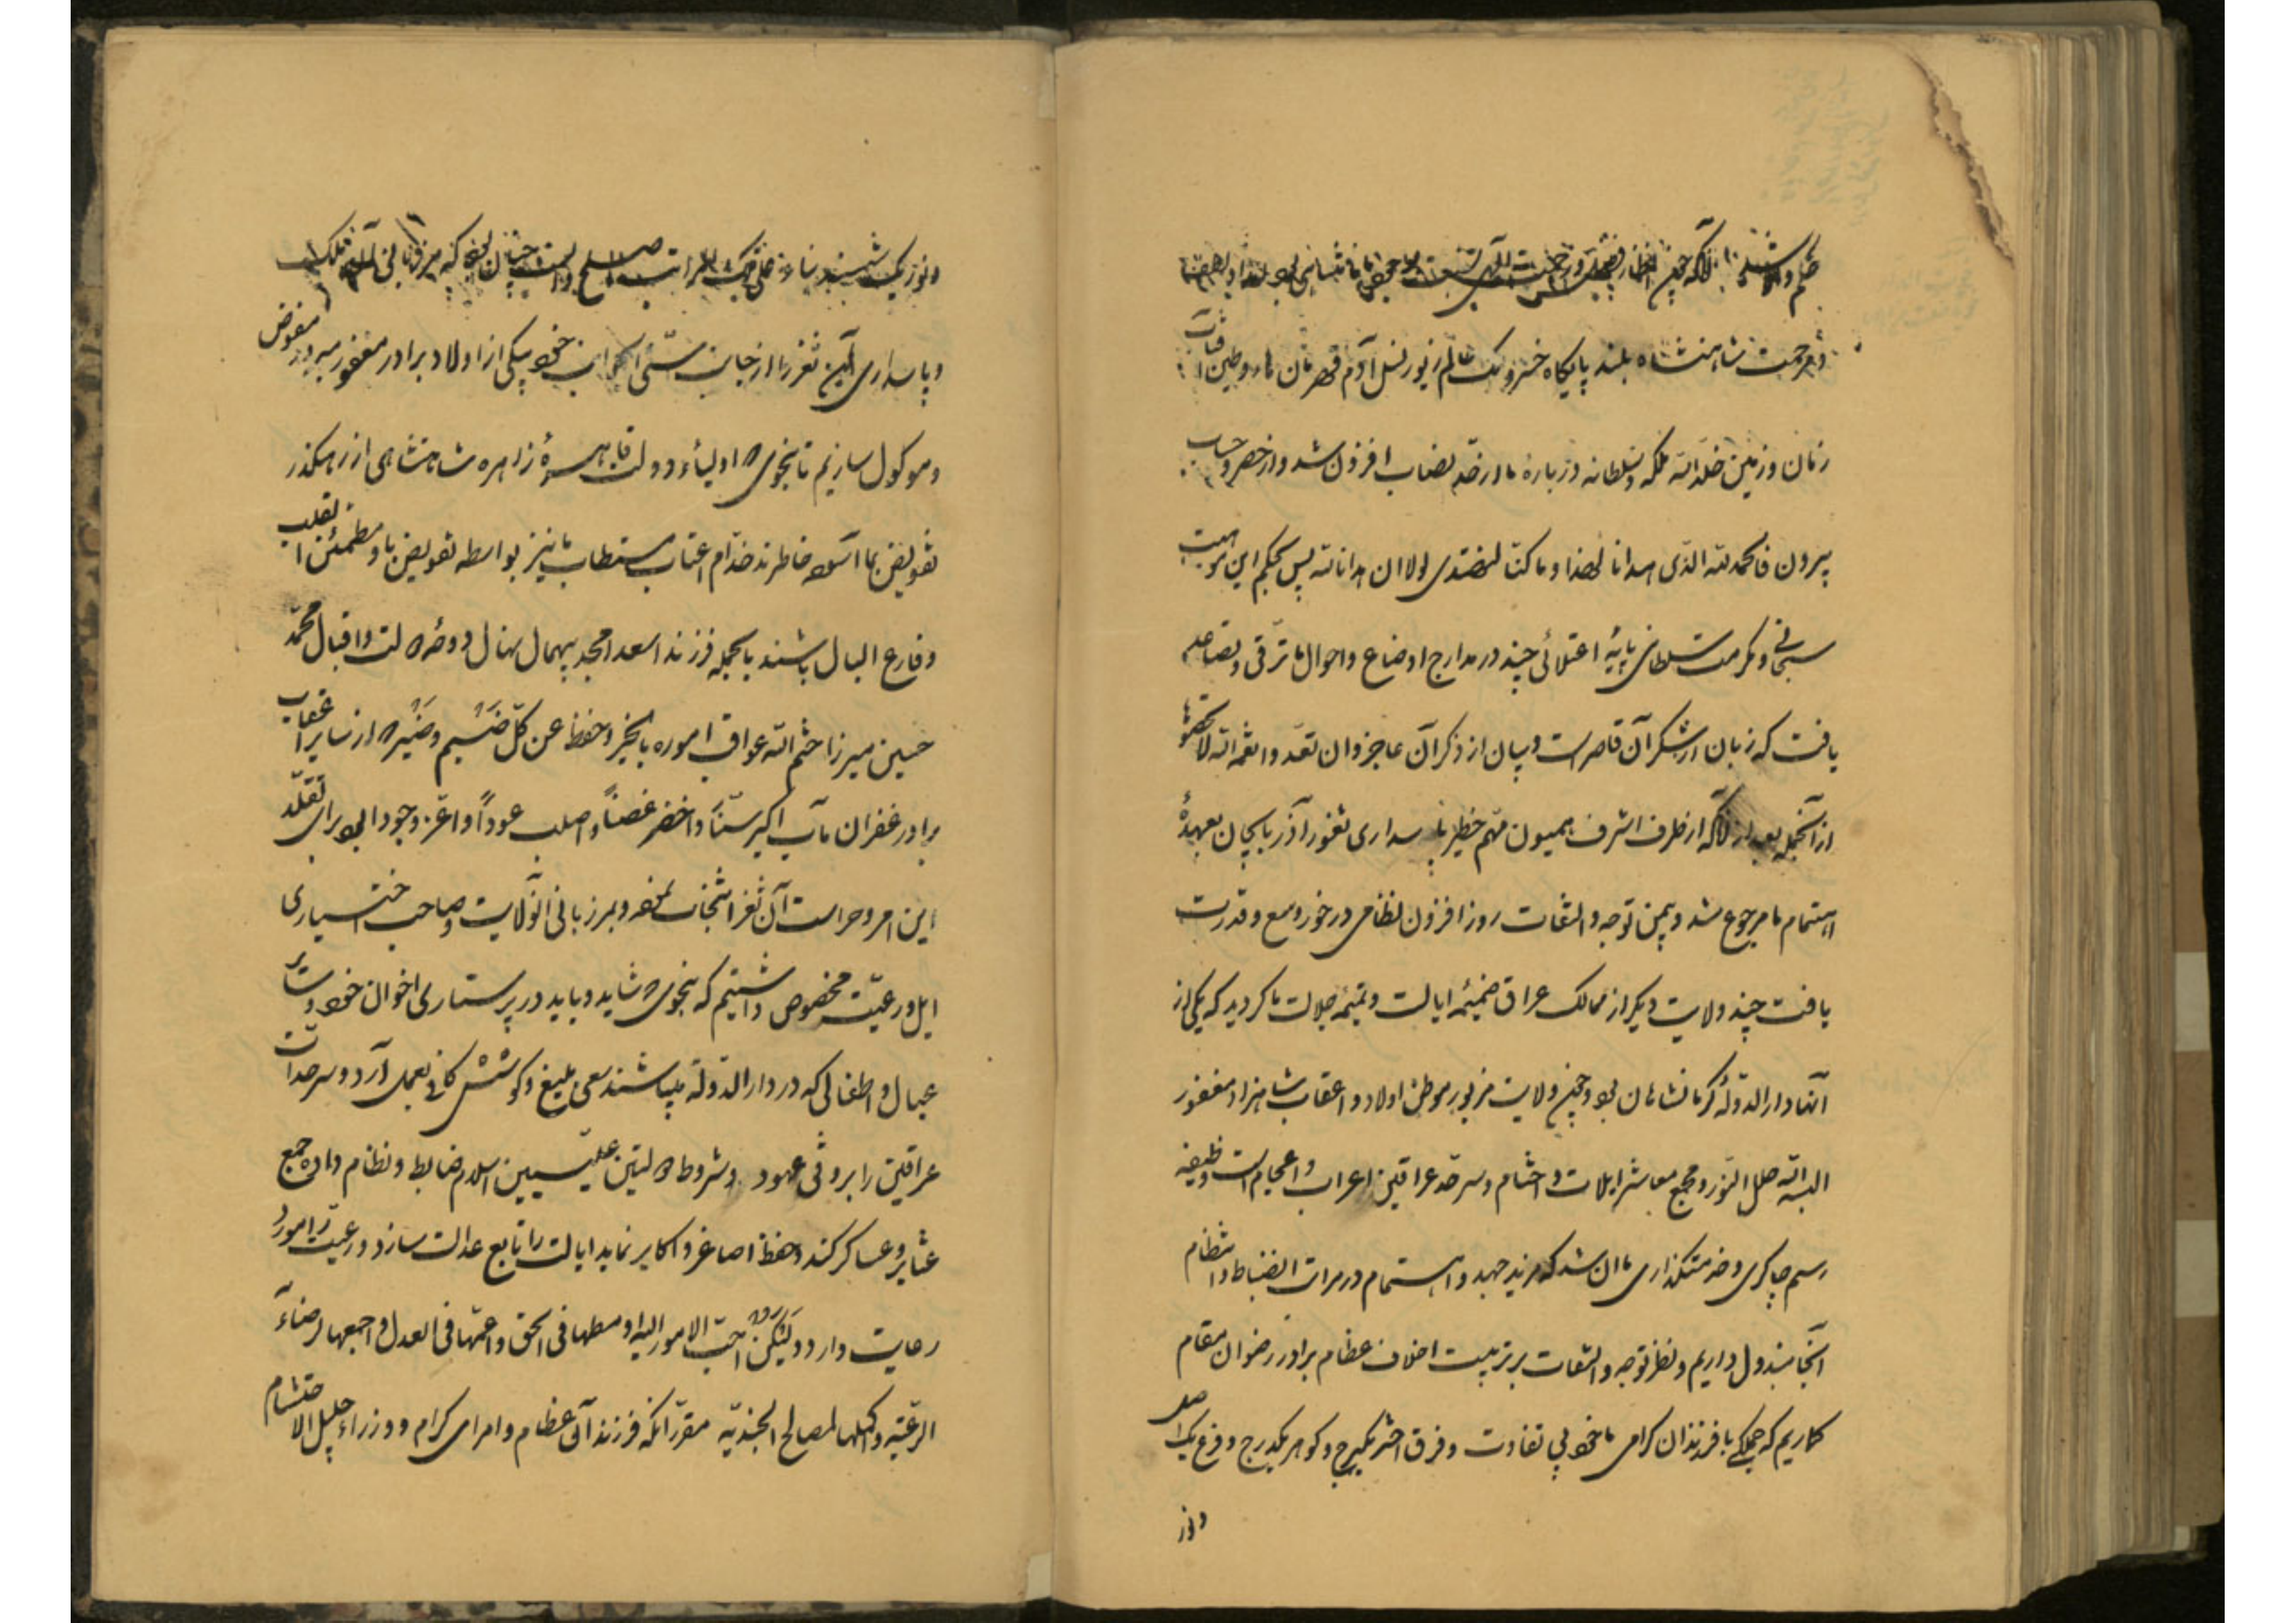 ختم و
و مرحمت شاهنشاه بلند پایگاه خسرو ملک عالم زیور نسل آدم قهرمان ماء و طین آفتاب
زمان و زمین خلد الله ملکه و سلطانه درباره ما از حد نصاب افزون شد و از حصر و حساب
بیرون فالحمد لله الذی هدانا لهذا و ما کنا لنهتدی لولا ان هدانا الله پس بحکم این موهبت
سبحانی و مکرمت سلطانی پایهٔ اعتلائی چند در مدارج اوضاع و احوال ما ترقی و تصاعد
یافت که زبان از شکر آن قاصر است و بیان از ذکر آن عاجز و ان تعدوا نعمة الله لا تحصوها
از آنجمله بعد از آنکه از طرف اشرف همیون مهم خطیر پاسداری ثغور آذربایجان بعهدهٔ
اهتمام ما مرجوع شد و بیمن توجه و التفات روز افزون نظامی در خور وسع و قدرت
یافت چند ولایت دیگر از ممالک عراق ضمیمهٔ ایالت و تتمیمهٔ جلالت ما گردید که یکی از
آنها دار الدولهٔ کرمانشاهان بود و چون ولایت مزبور موطن اولاد و اعقاب شاهزاده مغفور
البسه الله حلل النور و مجمع معاشر ایلات و احشام و سرحد عراقین اعراب و اعجام است وظیفه
رسم چاکری و خدمتگذاری ما ان شد که مزید جهد و اهتمام در مراتب انضباط و انتظام
آنجا مبذول داریم و نظر توجه و التفات بر تربیت اخلاف عظام برادر رضوان مقام
گماریم که جملگی با فرزندان گرامی ما خود بی تفاوت و فرق اختر یکبرج و گوهر یکدرج و فرع یک اصل
و نور
و نور یک
و پاسداری آن ثغر را از جانب سنی الجوانب خود بیکی از اولاد برادر مغفور مبرور مفوض
و موکول سازیم تا بنحوی که اولیاء دولت قاهرهٔ زاهره شاهنشاهی از رهگذر
تفویض بما آسوده خاطرند خدام اعتاب مستطاب ما نیز بواسطه تفویض باو مطمئن القلب
و فارغ البال باشند بالجمله فرزند اسعد امجد بیهمال نهال دوحهٔ دولت و اقبال محمد
حسین میرزا ختم الله عواقب اموره بالخیر و حفظ عن کل ضیم و ضیره از سایر اعقاب
برادر غفران مآب اکبر سناً و اخضر غصناً و اصلب عوداً و اعز وجودا بود برای تقلد
این امر و حراست آن ثغر انتخاب نموده و بمرزبانی آنولایت و صاحب اختیاری
ایل و رعیت مخصوص داشتیم که بنحوی که شاید و باید در پرستاری اخوان خود و سایر
عیال و اطفالی که در دار الدولة میباشند سعی بلیغ و کوشش کافی بعمل آرد و سرحدات
عراقین را بر وفق عهود و شروط دولتین علیتین اسلام ضابط و نظام داده جمع
عشایر و عساکر کند و حفظ اصاغر و اکابر نماید ایالت را تابع عدالت سازد و رعیت را مورد
رعایت دارد ولیکن احب الامور الیه اوسطها فی الحق و اعمها فی العدل و اجمعها لرضاء
الرعیة و اکملها لمصالح الجندیه مقرر آنکه فرزند آن عظام و امرای کرام و وزراء جلیل الاحتشام